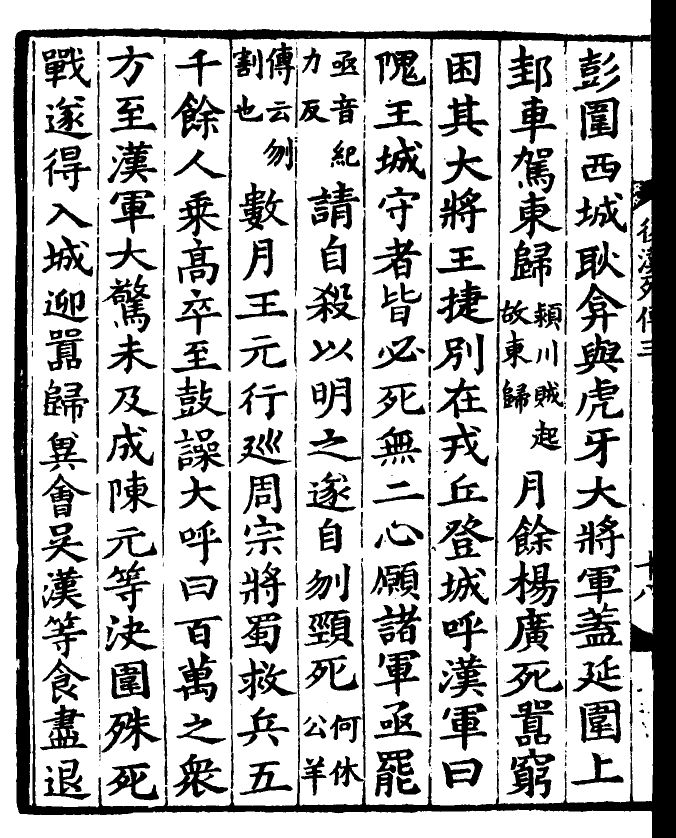 彭圍西城耿弇與虎牙大將軍蓋延圍上
邽車駕東歸頴川賊起故東歸月餘楊廣死囂窮
困其大將王捷別在戎丘登城呼漢軍曰
隗王城守者皆必死無二心願諸軍亟罷
亟音紀力反請自殺以明之遂自刎頸死何休公羊
傳云刎割也數月王元行巡周宗將蜀救兵五
千餘人乗髙卒至鼓譟大呼曰百萬之衆
方至漢軍大驚未及成陳元等決圍殊死
戰遂得入城迎囂歸兾會吳漢等食盡退